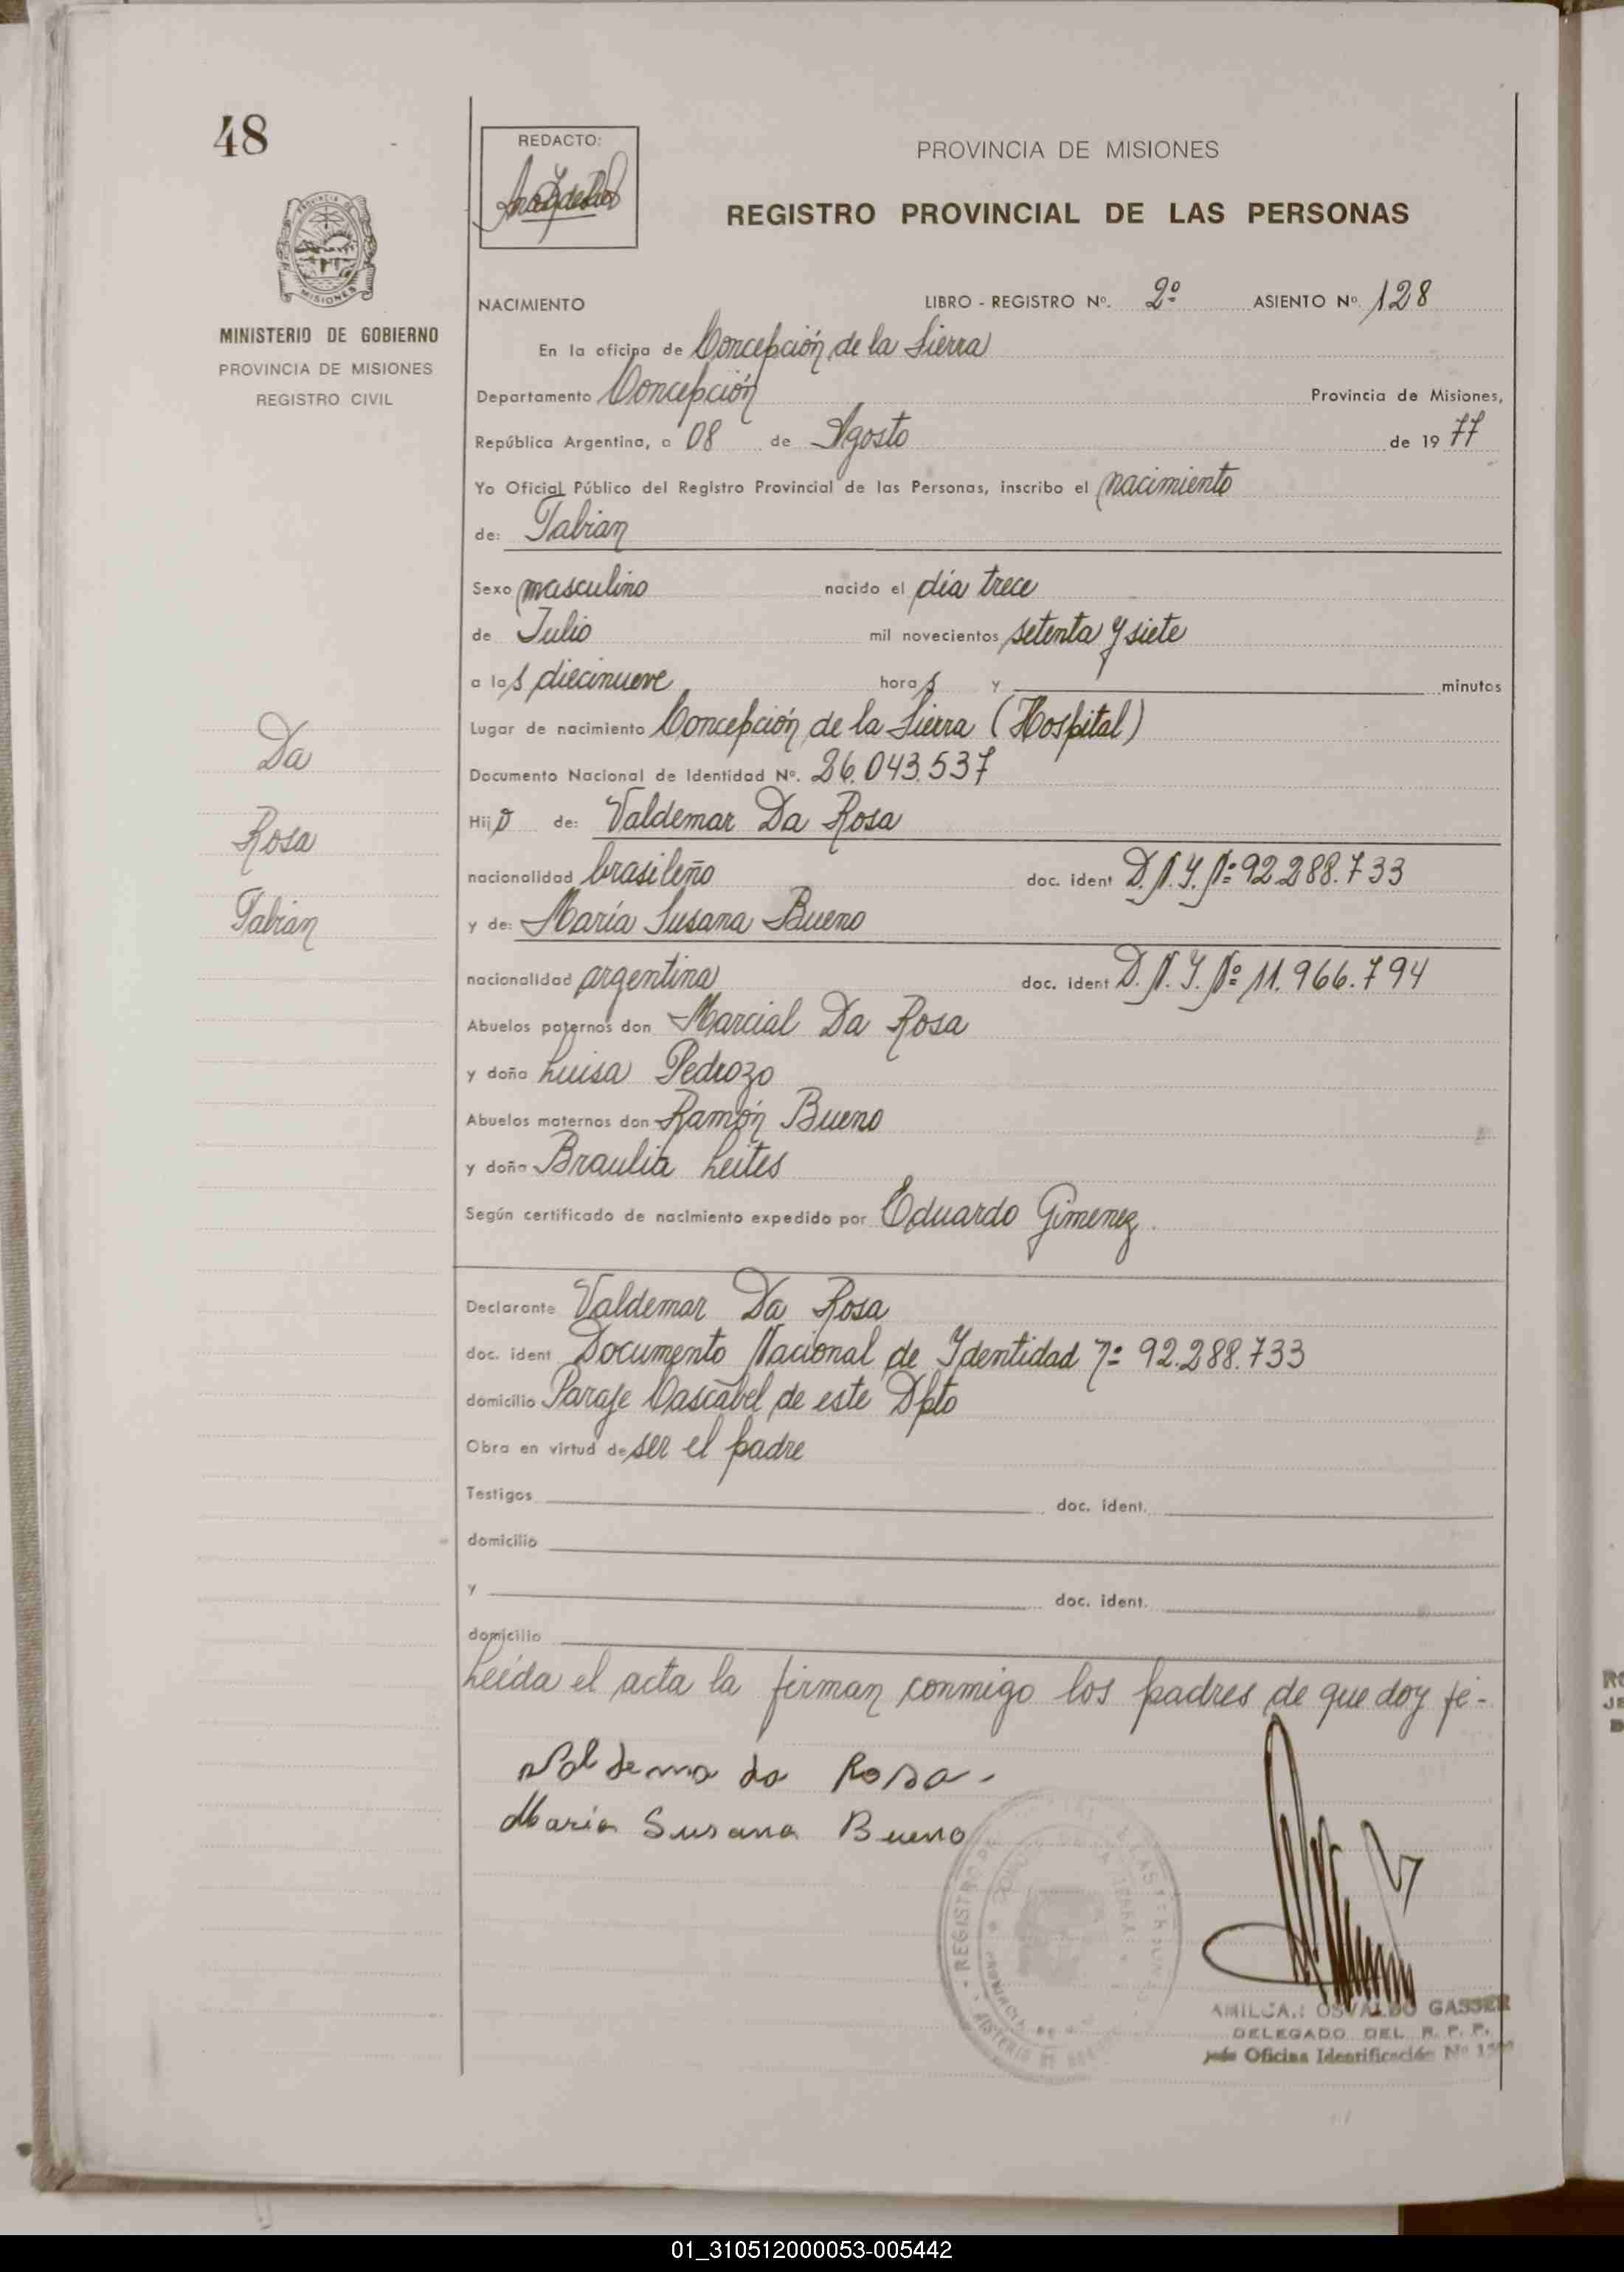 48
REDACTO:
PROVINCIA DE MISIONES
REGISTRO PROVINCIAL DE LAS PERSONAS
MISIONES
MINISTERIO DE GOBIERNO
PROVINCIA DE MISIONES
REGISTRO CIVIL
NACIMIENTO LIBRO - REGISTRO Nº. 2º ASIENTO Nº. 128
En la oficina de Concepción de la Sierra
Departamento Concepción Provincia de Misiones,
República Argentina, a 08 de Agosto de 1977
Yo Oficial Público del Registro Provincial de las Personas, inscribo el nacimiento
de: Fabian
Sexo masculino nacido el día trece
de Julio mil novecientos setenta y siete
a las diecinueve horas y minutos
Lugar de nacimiento Concepción de la Sierra (Hospital)
Documento Nacional de Identidad Nº. 26.043.537
Hijo de: Valdemar Da Rosa
nacionalidad brasileño doc. ident D.N.I. Nº 92.288.733
y de: María Susana Bueno
nacionalidad argentina doc. ident D.N.I. Nº 11.966.794
Abuelos paternos don Marcial Da Rosa
y doña Luisa Pedrozo
Abuelos maternos don Ramón Bueno
y doña Braulia Leites
Según certificado de nacimiento expedido por Eduardo Gimenez.
Da
Rosa
Fabián
Declarante Valdemar Da Rosa
doc. ident Documento Nacional de Identidad nº 92.288.733
domicilio Paraje Cascabel de este Dpto
Obra en virtud de ser el padre
Testigos doc. ident.
domicilio
y doc. ident.
domicilio
Leída el acta la firman conmigo los padres de que doy fé-
Valdema da Rosa.
Maria Susana Bueno
OSVALDO GASSER
DELEGADO DEL R. P. P.
Jefe Oficina Identificación Nº
01_310512000053-005442